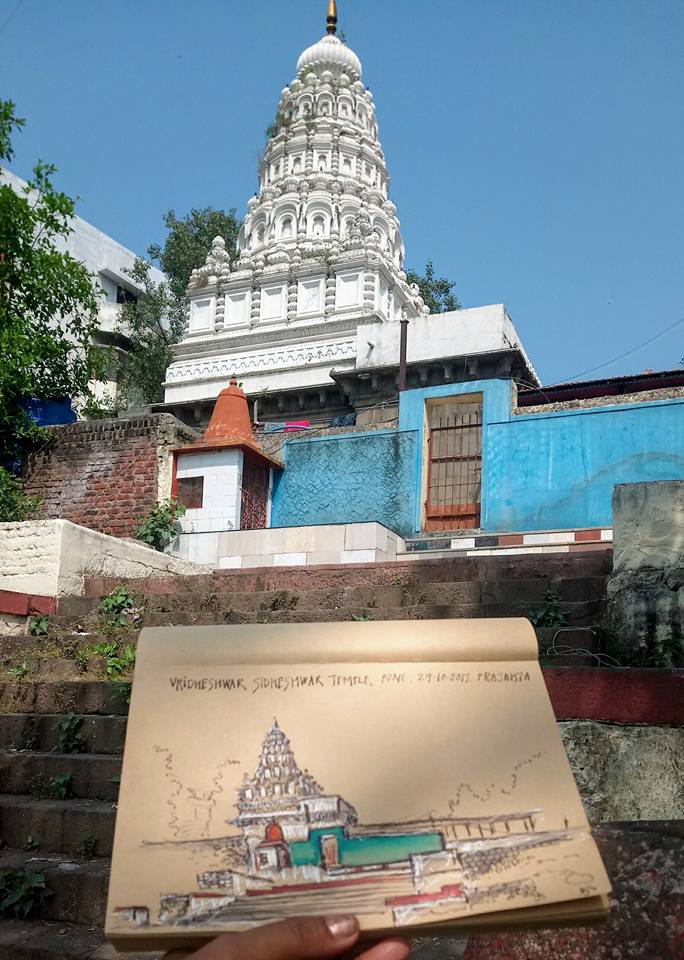 VRIDHESHWAR SIDHESHWAR TEMPLE, PUNE. 29·10·2017. PRAJAKTA